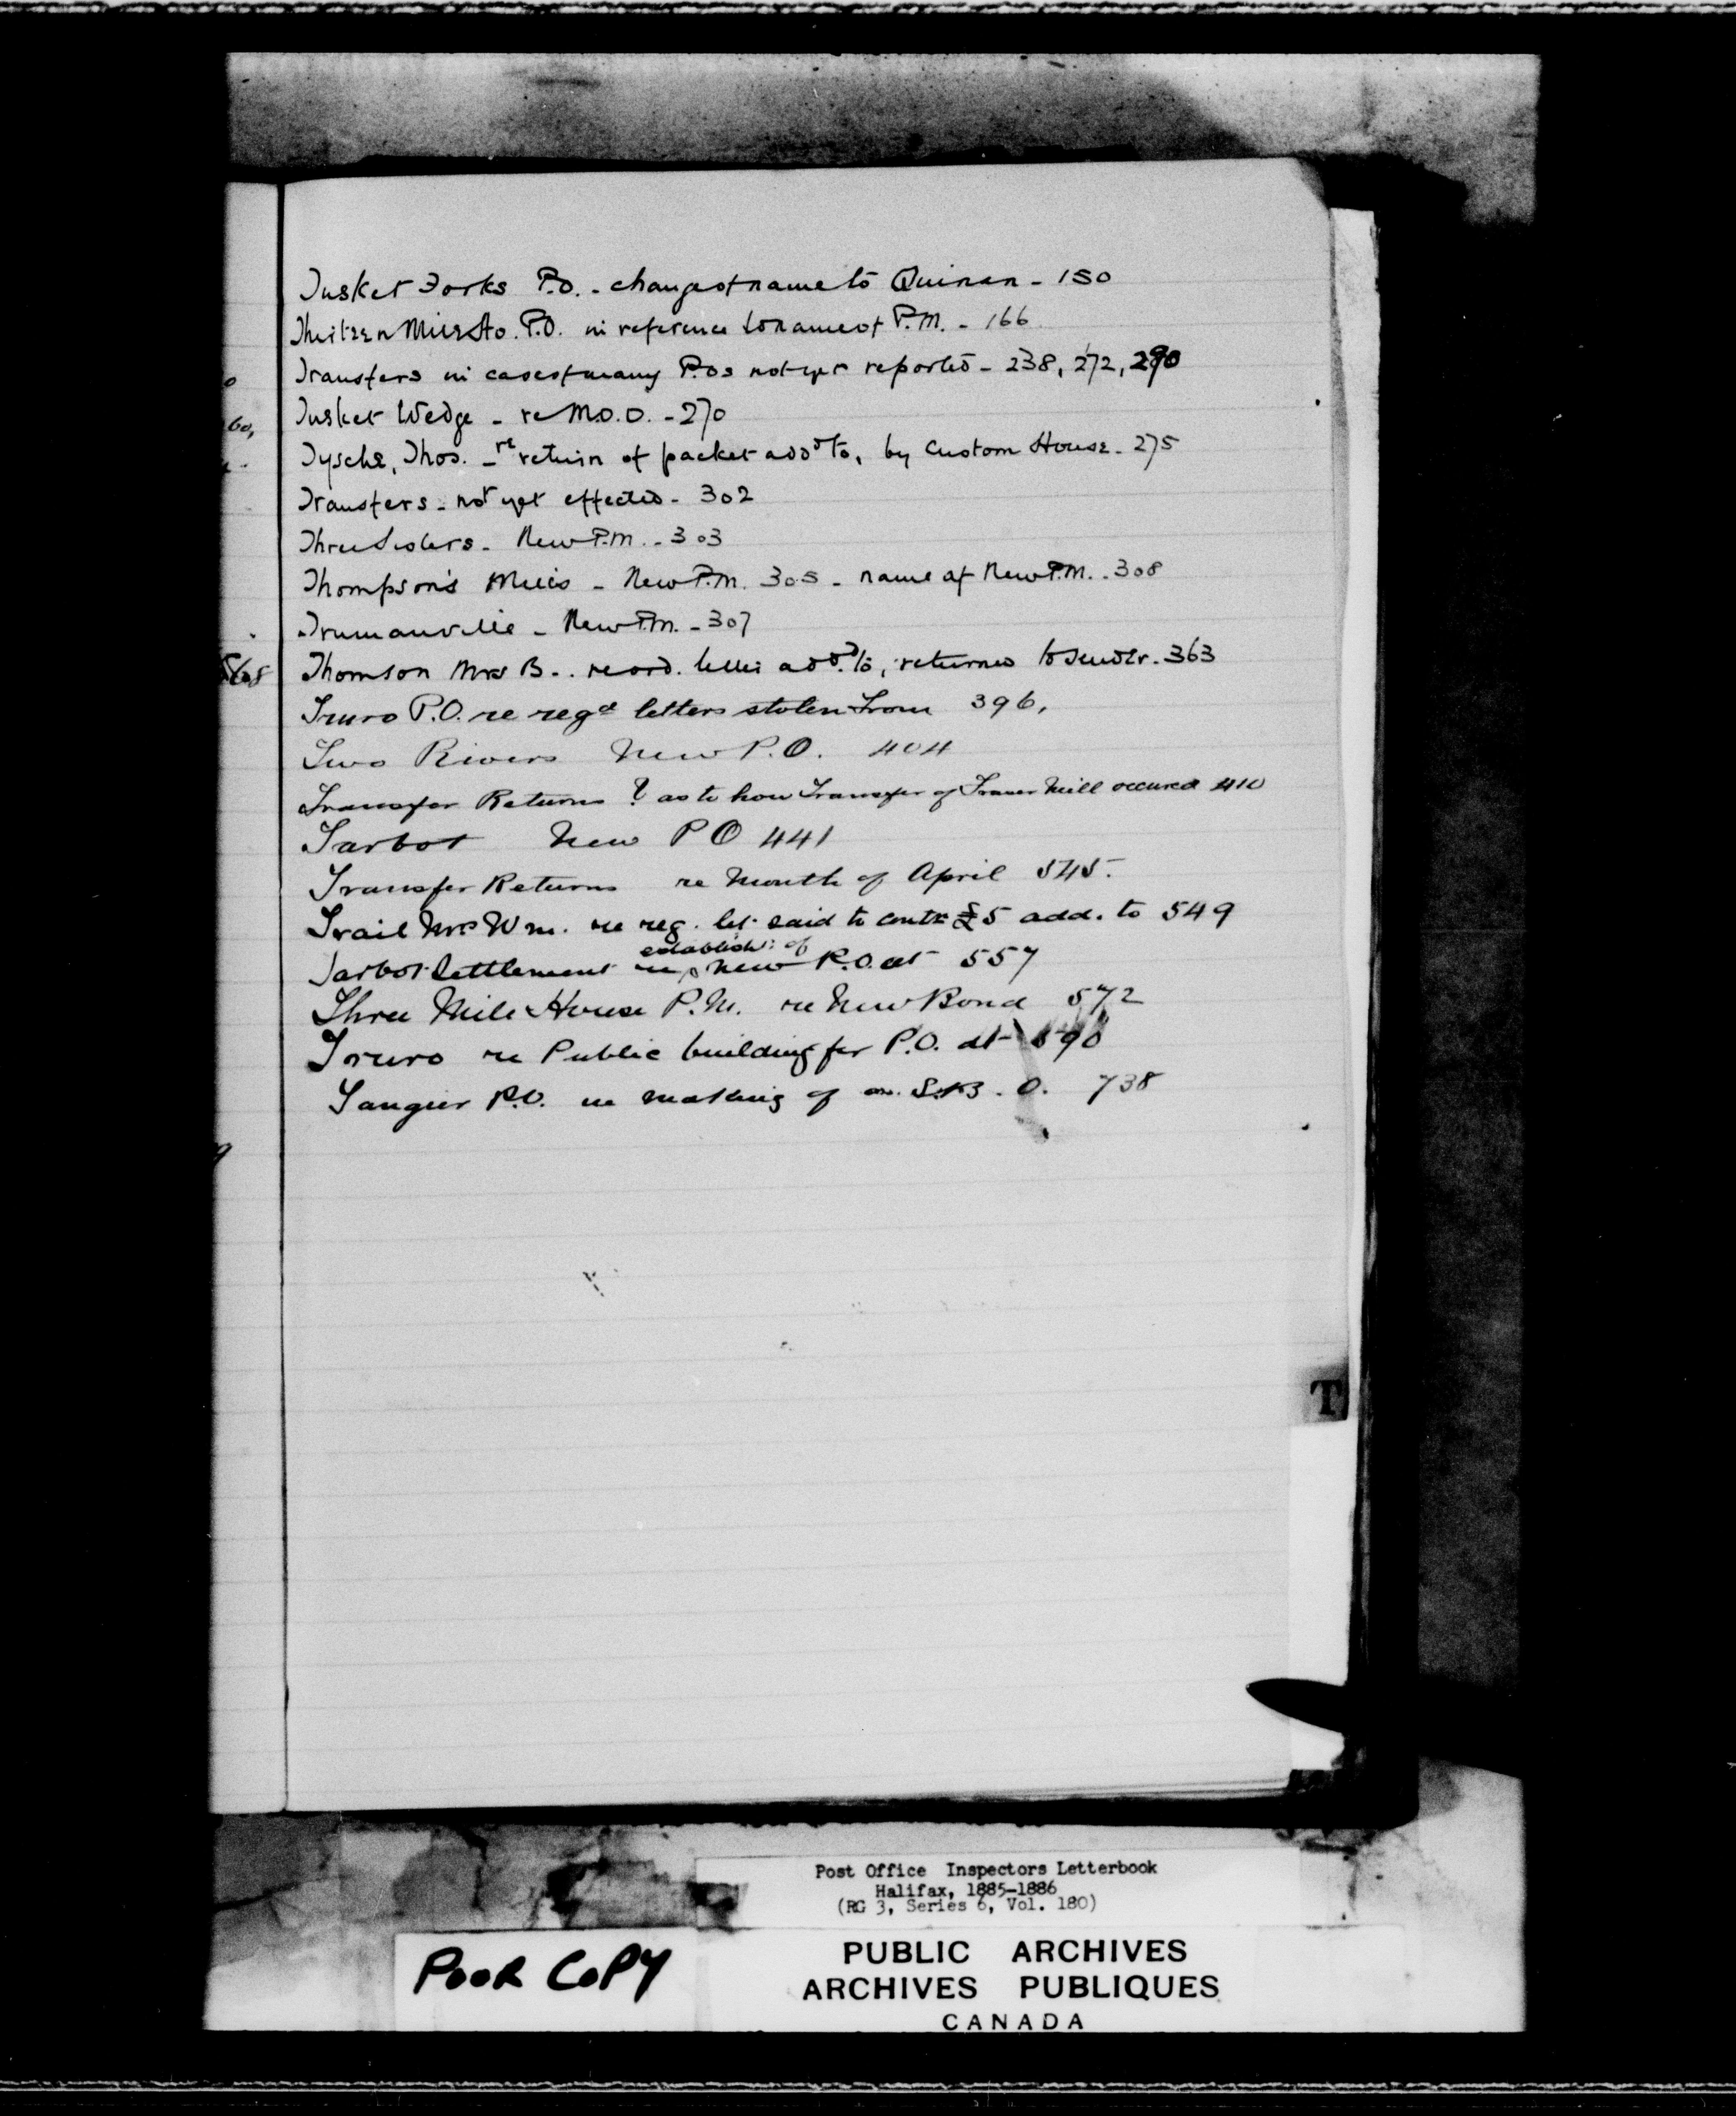 Tusket Forks P.O. - change of name to Quinan - 150
Thirteen Mile Ho. P.O. in reference to name of P.M. - 166
Transfers in cases of many P.Os not yet reported - 238, 272, 290
Tusket Wedge - re M.O.O. - 270
60,
Tysche, Thos. - re return of packet addd to, by Custom House - 275
Transfers - not yet effected - 302
Three Sisters - New P.M. - 303
Thompson's Mills - New P.M. 305 - name of New P.M. - 308
Trumanville - New P.M. - 307
Thomson Mrs B. - letter addd to, returned to sender - 363
Truro P.O. re regd letters stolen from 396,
Two Rivers New P.O. 404
Transfer Returns ? as to how Transfer of Fraser Mill occured 410
Tarbot New PO 441
Transfer Returns re Month of April 545.
Trail Mrs Wm. re reg. let. said to contn £5 add. to 549
Tarbot Settlement re establisht of new P.O. at 557
Three Mile House P.M. re New Bond 572
Truro re Public building for P.O. at 590
Tangier P.O. re making of an S.B.O. 738
T
Post Office Inspectors Letterbook
Halifax, 1885-1886
(RG 3, Series 6, Vol. 180)
POOR COPY
PUBLIC ARCHIVES
ARCHIVES PUBLIQUES
CANADA